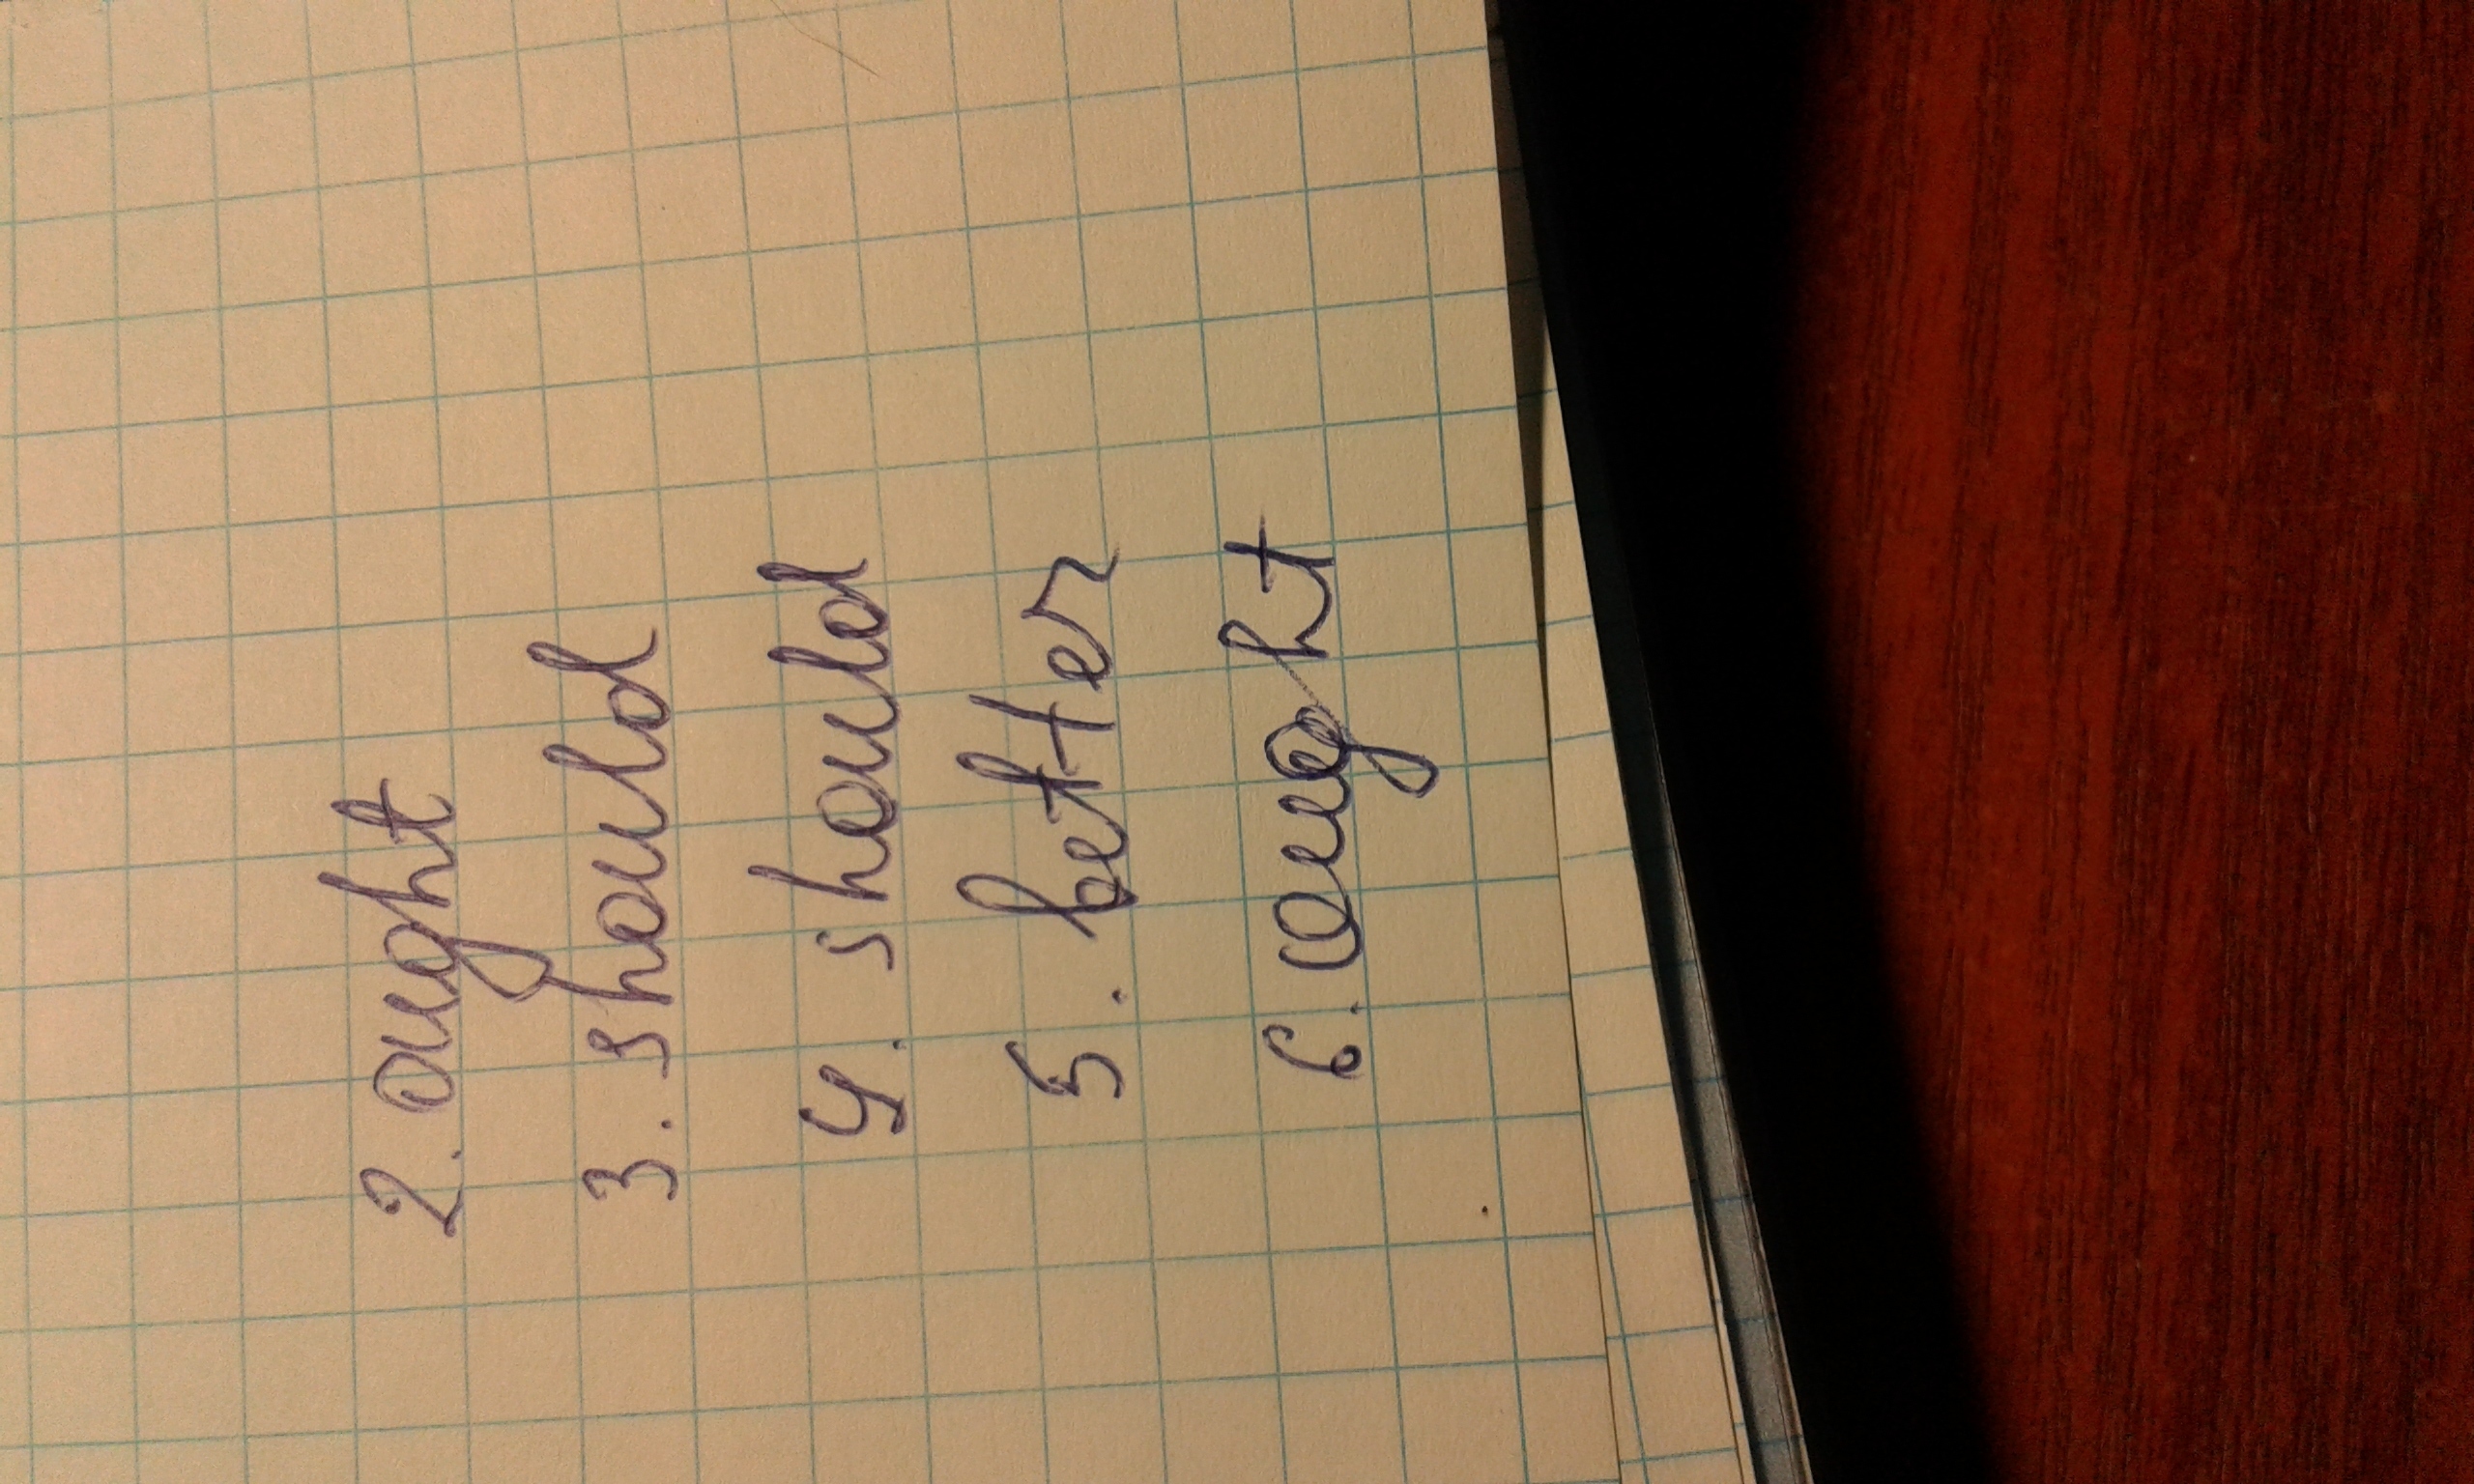 2. ought
3. should
4. should
5. better
6. ought